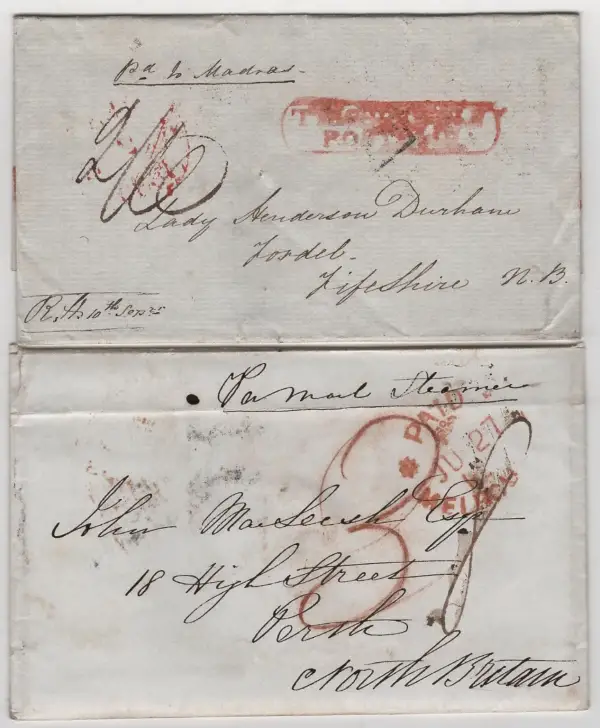 Pd to Madras
2/
POST
Lady Henderson Durham
Fordel.
Fifeshire N.B.
10th
Per Mail Steamer
PAID
JU 27
3
John Esqr
18 High Street
Perth
North Britain